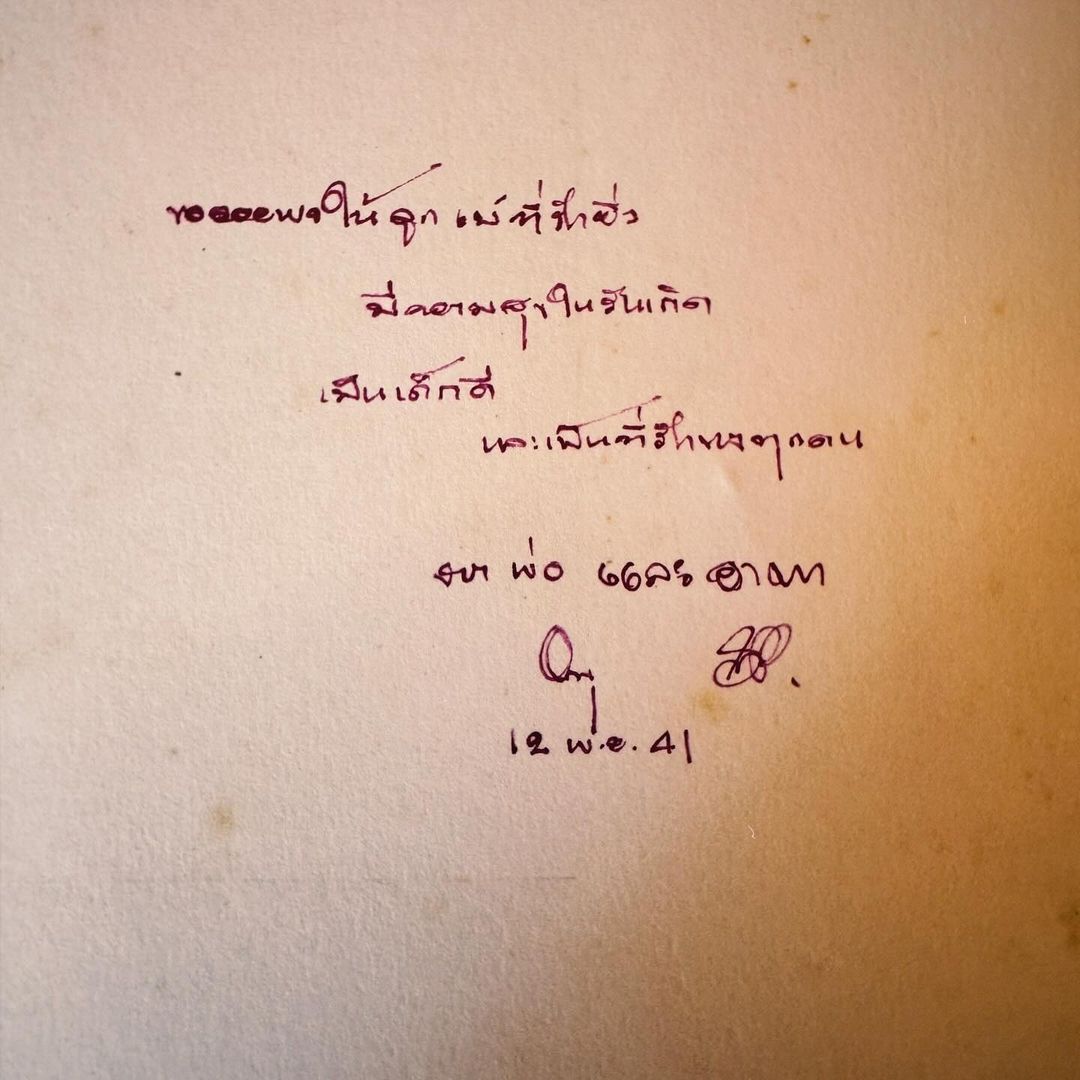 ขออวยพรให้ลูก เม่ ที่รักยิ่ง
มีความสุขในวันเกิด
เป็นเด็กดี
และเป็นที่รักของทุกคน
จาก พ่อ และ
12 พ.ย. 41